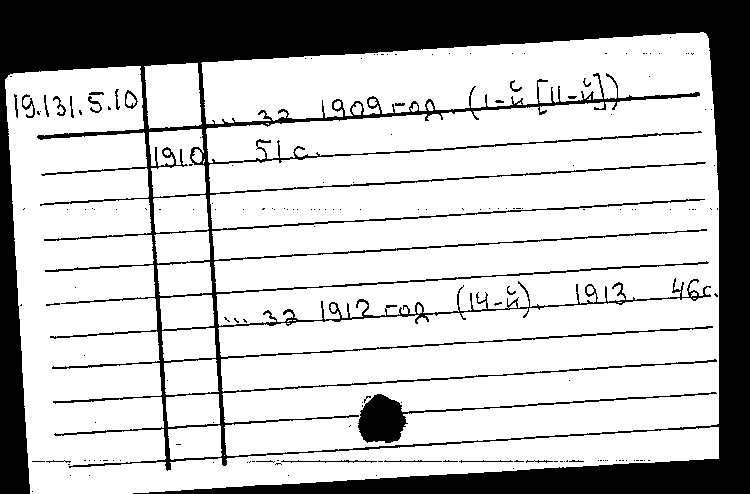 19.131.5.10 ... за 1909 год. (1-й [11-й]).
1910. 51 с.
... за 1912 год. (14-й). 1913. 46с.